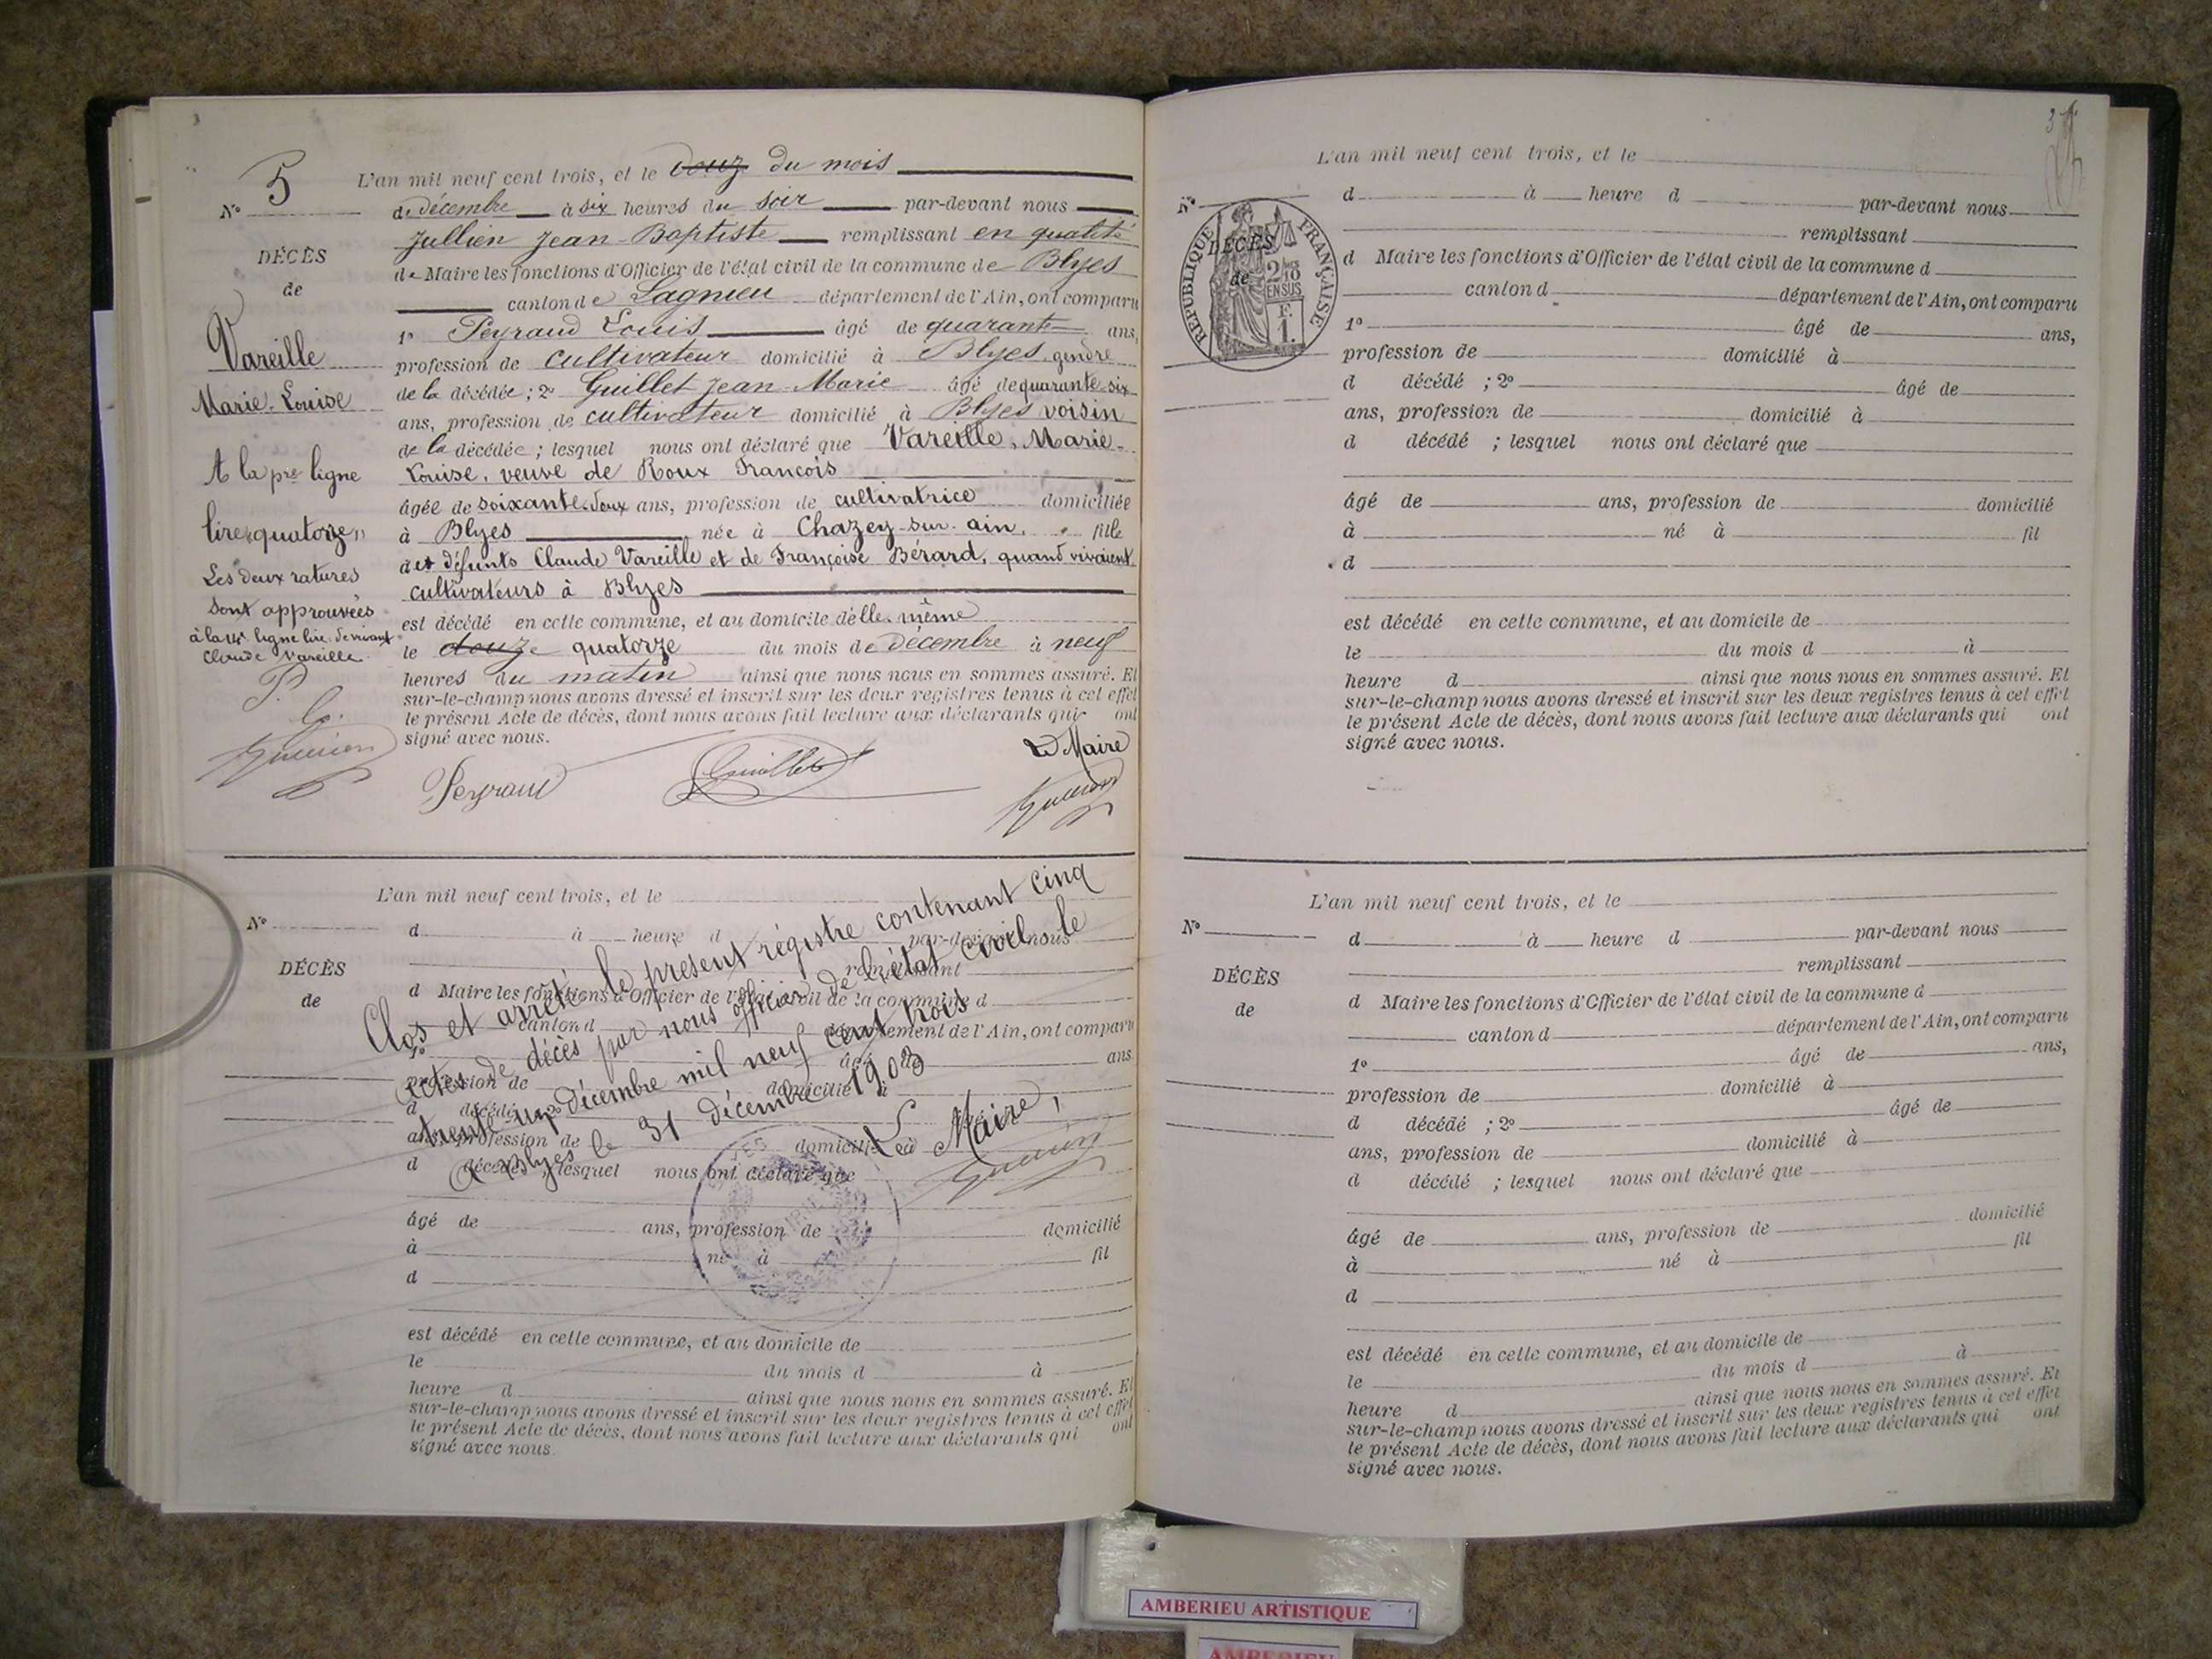 N° 5
DÉCÈS
de
Vareille
Marie-Louise
A la pre ligne
lire "quatorze"
Les deux ratures
sont approuvées
à la 14e ligne lire: de vivant
Claude Vareille
P.
G.
L'an mil neuf cent trois, et le douze du mois
de décembre à six heures du soir par-devant nous
Jullien Jean-Baptiste remplissant en qualité
de Maire les fonctions d'Officier de l'état civil de la commune de Blyes
canton de Lagnieu département de l'Ain, ont comparu
1° Peyraud Louis âgé de quarante ans,
profession de cultivateur domicilié à Blyes, gendre
de la décédée; 2° Guillet Jean-Marie âgé de quarante-six
ans, profession de cultivateur domicilié à Blyes voisin
de la décédée; lesquel nous ont déclaré que Vareille, Marie-
Louise, veuve de Roux François
âgée de soixante-deux ans, profession de cultivatrice domiciliée
à Blyes née à Chazey-sur-ain, fille
des défunts Claude Vareille et de Françoise Bérard, quand vivaient
cultivateurs à Blyes
est décédé en cette commune, et au domicile d'elle-même
le douze quatorze du mois de décembre à neuf
heures du matin ainsi que nous nous en sommes assuré. Et
sur-le-champ nous avons dressé et inscrit sur les deux registres tenus à cet effet
le présent Acte de décès, dont nous avons fait lecture aux déclarants qui ont
signé avec nous.
Le Maire
Peyraud Guillet
L'an mil neuf cent trois, et le
N°
d à heure d par-devant nous
remplissant
DÉCÈS
de
d Maire les fonctions d'Officier de l'état civil de la commune d
canton d département de l'Ain, ont comparu
1° âgé de ans
profession de domicilié à
d décédé ; 2°
ans, profession de domicilié à
d décédé ; lesquel nous ont déclaré que
âgé de ans, profession de domicilié
à né à fil
d
est décédé en cette commune, et au domicile de
le du mois d à
heure d ainsi que nous nous en sommes assuré. Et
sur-le-champ nous avons dressé et inscrit sur les deux registres tenus à cet effet
le présent Acte de décès, dont nous avons fait lecture aux déclarants qui ont
signé avec nous.
Clos et arrêté le présent régistre contenant cinq
actes de décès par nous officier de l'état civil le
trente un décembre mil neuf cent trois
A Blyes le 31 décembre 1903
Le Maire,
L'an mil neuf cent trois, et le
N°
d à heure d par-devant nous
remplissant
DÉCÈS
de
RÉPUBLIQUE FRANÇAISE
2/10 EN SUS
F.
1.
d Maire les fonctions d'Officier de l'état civil de la commune d
canton d département de l'Ain, ont comparu
1° âgé de ans,
profession de domicilié à
d décédé ; 2° âgé de
ans, profession de domicilié à
d décédé ; lesquel nous ont déclaré que
âgé de ans, profession de domicilié
à né à fil
d
est décédé en cette commune, et au domicile de
le du mois d à
heure d ainsi que nous nous en sommes assuré. Et
sur-le-champ nous avons dressé et inscrit sur les deux registres tenus à cet effet
le présent Acte de décès, dont nous avons fait lecture aux déclarants qui ont
signé avec nous.
L'an mil neuf cent trois, et le
N°
d à heure d par-devant nous
remplissant
DÉCÈS
de
d Maire les fonctions d'Officier de l'état civil de la commune d
canton d département de l'Ain, ont comparu
1° âgé de ans,
profession de domicilié à
d décédé ; 2° âgé de
ans, profession de domicilié à
d décédé ; lesquel nous ont déclaré que
âgé de ans, profession de domicilié
à né à fil
d
est décédé en cette commune, et au domicile de
le du mois d à
heure d ainsi que nous nous en sommes assuré. Et
sur-le-champ nous avons dressé et inscrit sur les deux registres tenus à cet effet
le présent Acte de décès, dont nous avons fait lecture aux déclarants qui ont
signé avec nous.
AMBERIEU ARTISTIQUE
AMBERIEU